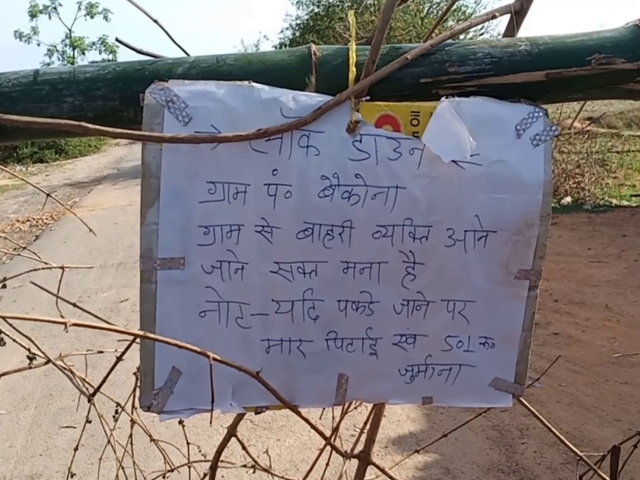 लॉक डाउन
Oil
ग्राम पं० बैकोना
ग्राम से बाहरी व्यक्ति आने
जाने सक्त मना है
नोट-यदि पकडे जाने पर
मार पिटाई एवं 501 रू०
जुर्माना